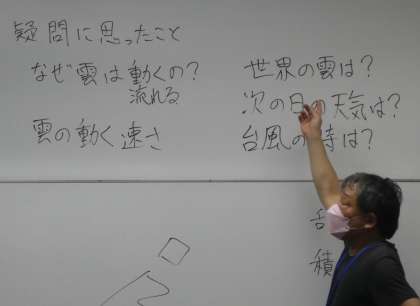 疑問に思ったこと
なぜ雲は動くの?
流れる
雲の動く速さ
世界の雲は?
次の日の天気は?
台風の時は?
積